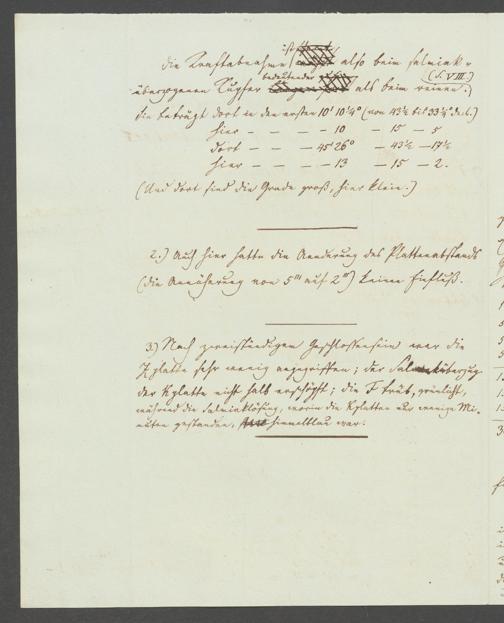 ist
die Kraftabnahme also beim salmiak-
bedeutender (S. VIII.)
überzogenen Kupfer als beim reinen.
Sie beträgt dort in den ersten 10' 10¼° (von 43½ bis 33¼° decl.)
hier – – – 10 – 15 – 5
dort – – – 45' 26° – 43½ – 17½
hier – – – 13 – 15 – 2.
(Und dort sind die Grade groß, hier klein.)
2.) Auch hier hatte die Aenderung des Plattenabstands
(die Annäherung von 5''' auf 2''') keinen Einfluß.
3) Nach zweistündigem Geschlossensein war die
Zplatte sehr wenig angegriffen; der Salmiaküberzug
der Kplatte nicht halb erschöpft; die F trüb, grünlich,
während die Salmiaklösung, worin die Kplatten nur wenige Mi-
nuten gestanden, himmelblau war.